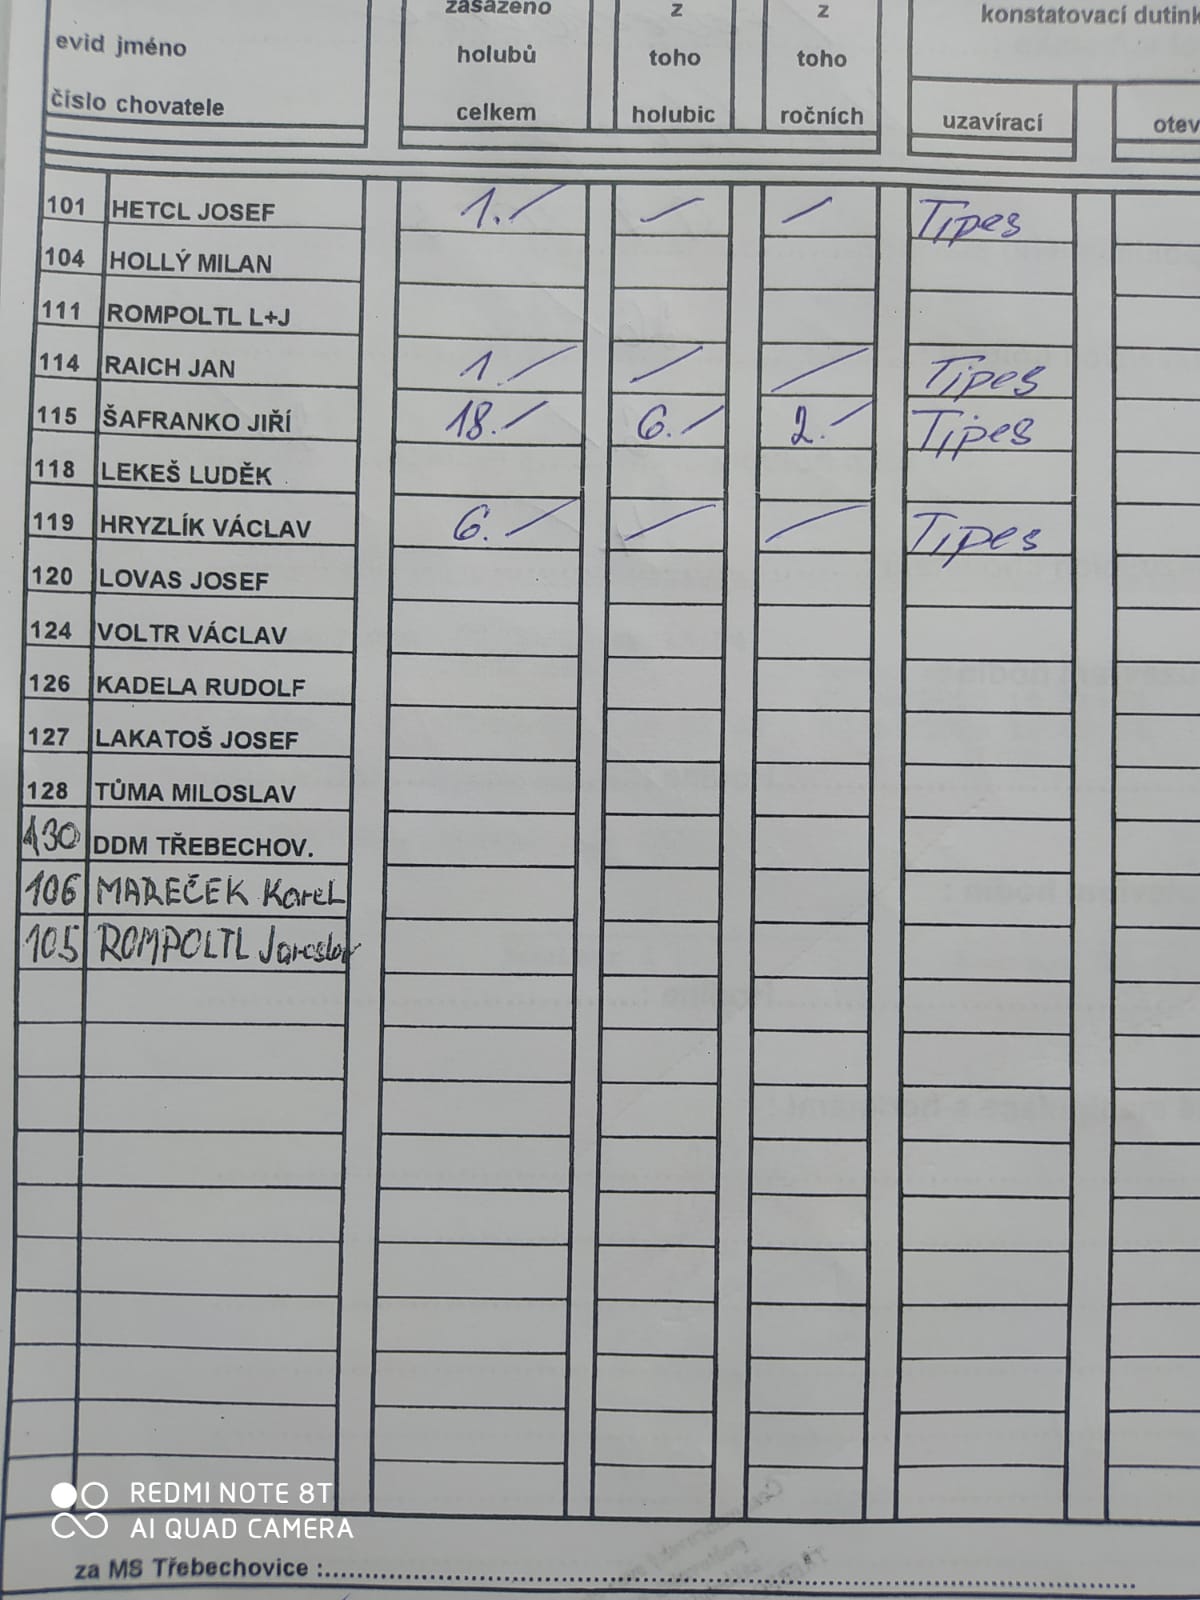 zasazeno z z konstatovací dutink
evid jméno holubů toho toho
číslo chovatele celkem holubic ročních uzavírací otev
101 HETCL JOSEF 1./ / / Tipes
104 HOLLÝ MILAN
111 ROMPOLTL L+J
114 RAICH JAN 1./ / / Tipes
115 ŠAFRANKO JIŘÍ 18./ 6./ 2./ Tipes
118 LEKEŠ LUDĚK
119 HRYZLÍK VÁCLAV 6./ / / Tipes
120 LOVAS JOSEF
124 VOLTR VÁCLAV
126 KADELA RUDOLF
127 LAKATOŠ JOSEF
128 TŮMA MILOSLAV
130 DDM TŘEBECHOV.
106 MAREČEK Karel
105 ROMPOLTL Jaroslav
REDMI NOTE 8T
AI QUAD CAMERA
za MS Třebechovice :